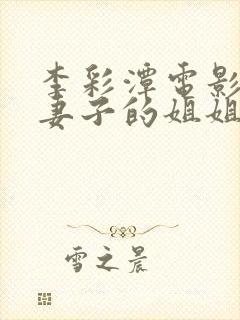 李彩潭電影
妻子的姐姐
雪之晨